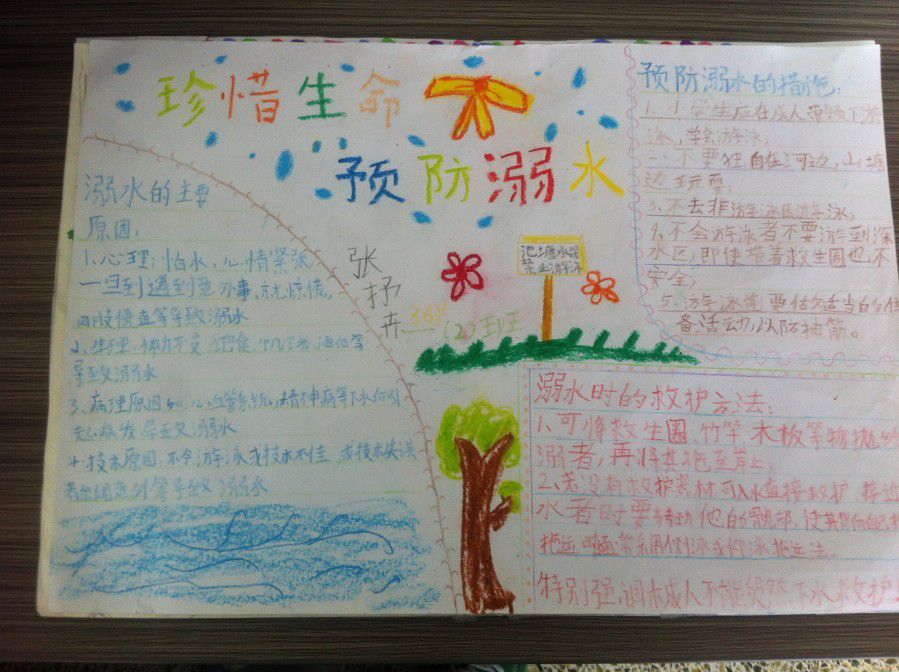 珍惜生命
预防溺水
溺水的主要
原因:
1、心理:怕水,心情紧张
一旦到遇到意外事,就惊慌,
四肢僵直等导致溺水
2、生理:体力不支、饱食、饥饿、酒后等
导致溺水
3、病理原因如心血管系统,精神病等下水何引
起病发导致溺水
4、技术原因:不会游泳或技术不佳
意外等导致溺水
张
抒
卉
(2)班
池塘水深
禁止游泳
预防溺水的措施:
1、小学生应在成人带领下游
泳,学会游泳;
二、不要独自在河边,山塘
边玩耍;
3、不去非游泳区游泳;
4、不会游泳者不要游到深
水区,即使带着救生圈也不
安全;
5、游泳前要做适当的
备活动,以防抽筋。
溺水时的救护方法:
1、可将救生圈、竹竿、木板等物抛给
溺者,再将其拖至岸上;
2、若没有救护器材,可入水直接救护。接近
水者时要转动他的髋部,使其背向自己
拖运。通常采用侧泳或仰泳拖运法。
特别强调:未成人不能贸然下水救护